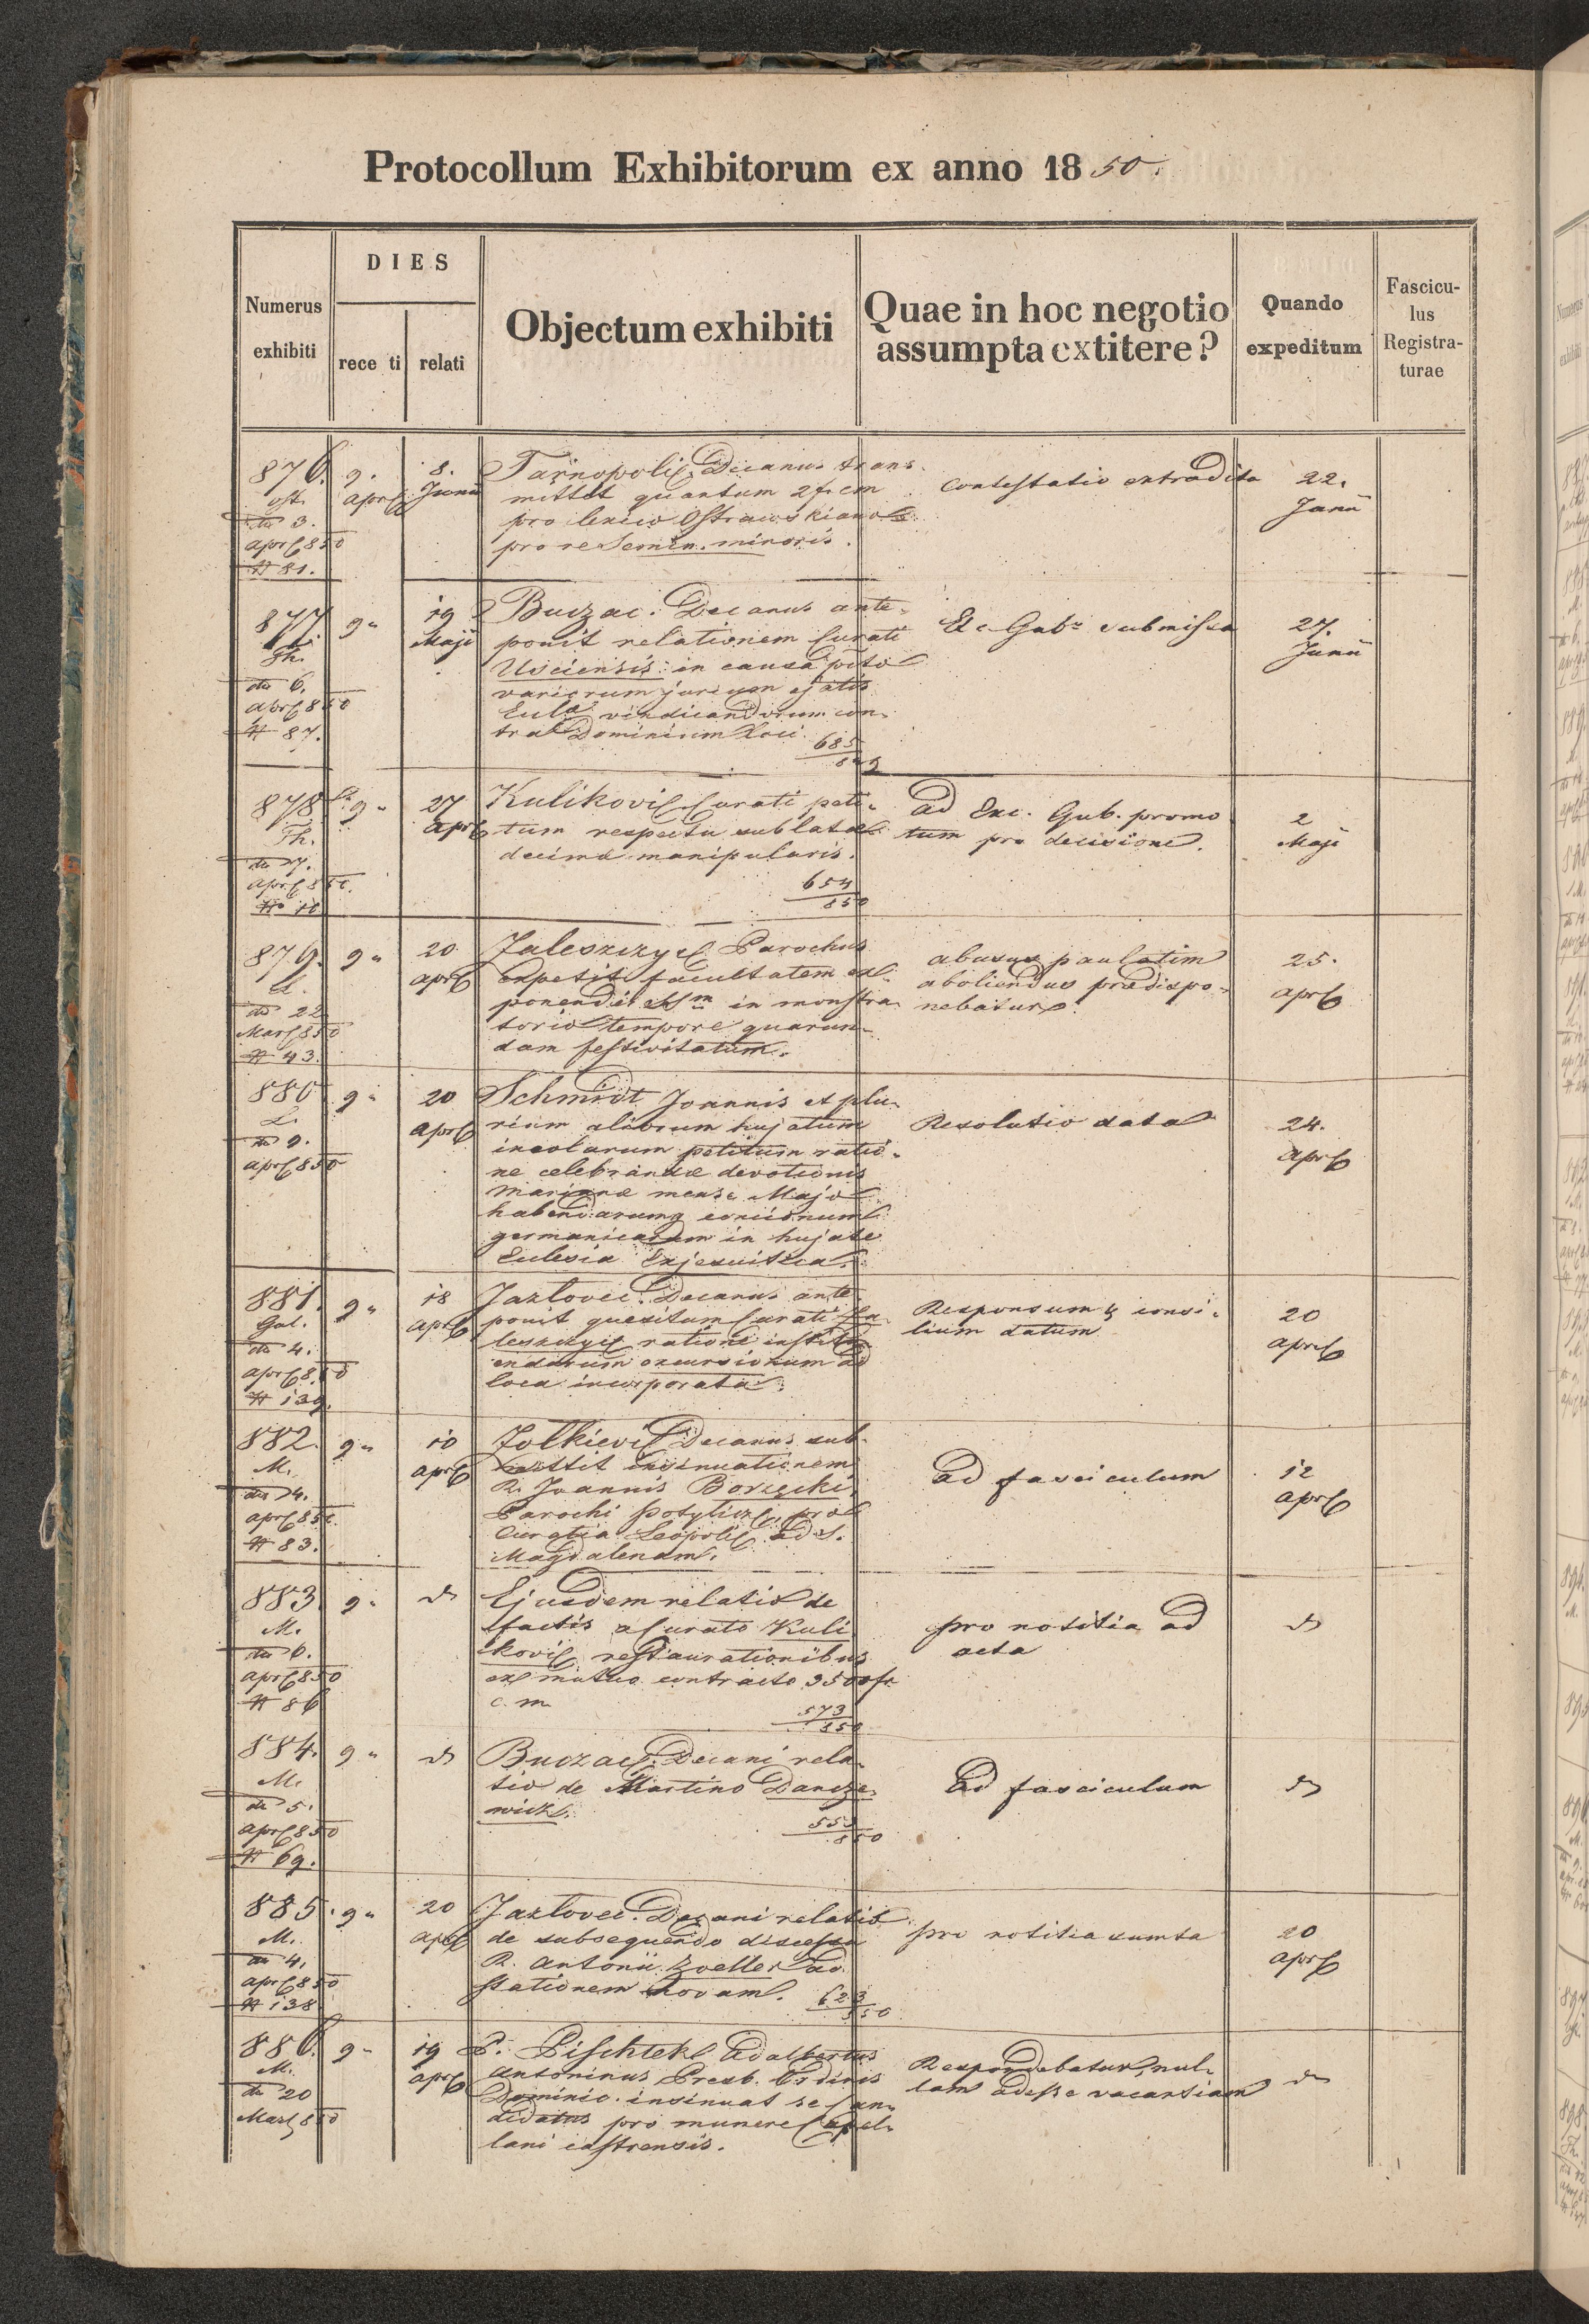 Protocollum Exhibitorum ex anno 1850.
Numerus exhibiti
DIES
rece ti
relati
Objectum exhibiti
Quae in hoc negotio
assumpta extitere?
Quando
expeditum
Fascicu-
lus
Registra-
turae
876. 9. 8.
Apr. Junii
3.
Apr 850
# 81.
Tarnopol. Decanus trans
mittit quantum 2 f. cm
pro
pro re Semin. minoris.
contestatio extradita
22.
Junii
877. 9 " 19
Th. Maji
6.
Apr 850
# 87.
Buczac. Decanus ante-
ponit relationem Curati
Usciensis in causa
variorum jurium
Eccl. vindicandorum con-
tra Dominium Loci
685
Exc. Gub. submissa
27.
Junii
878 9 " 27
Th. Apr
7.
Apr 850.
Kulikovi. Curati peti-
tum respectu sublatae
decimae manipularis.
654
850
Ad Exc. Gub. promo
tum pro decisione.
2
Maji
879. 9 " 20
L. Apr
22
Mart 850
# 43.
Zaleszczyc. Parochus
expetit facultatem ex-
ponendi in monstra-
torio tempore quarun-
dam festivitatum.
abusus paulatim
aboliendus praedispo-
nebatur.
25.
Apr
880 9 " 20
L. Apr
9.
Apr 850
Schmidt Joannis et plu-
rium aliorum hujatum
incolarum petitum ratio-
ne celebrandae devotionis
Marianae mense Majo
habendarumq concionum
germanicarum in hujate
Ecclesia Exjesuitica.
Resolutio data
24.
Apr
881. 9 " 18
Gal. Apr
4.
Apr 850
# 139.
Jazlovec. Decanus ante
ponit quesitum Curati Za-
leszczyc ratione institu
endarum excursionum ad
loca incorporata.
Responsum & consi-
lium datum
20
Apr
882. 9 " 10
M. Apr
4.
Apr 850.
# 83.
Zolkievi. Decanus sub-
mittit insinuationem
R. Joannis Borzęcki
Parochi Potylicz, pro
Curatia Leopoli ad S.
Magdalenam.
Ad fasciculum
12
Apr
883. 9 "
M.
6.
Apr 850
# 86
Ejusdem relatio de
factis a Curato Kuli
kovi restaurationibus
ex mutuo contracto 3500 fr
c. m.
573
850
pro notitia ad
acta
884. 9 "
M.
5.
Apr 850
# 69.
Buczac. Decani rela-
tio de Martino Dancze-
wicz.
553
850
Ad fasciculum
885. 9 " 20
M. Apr
4.
Apr 850
# 138
Jazlovec. Decani relatio
de subsequendo discessu
R. Antonii Zoeller ad
stationem novam.
623
850
pro notitia sumta
20
Apr
886. 9 " 19
M. Apr
20
Mart 850
P. Pischtek Adalbertus
Antoninus Presb. Ordinis
Dominic. insinuat se Can-
didatus pro munere Capel-
lani castrensis.
Respondebatur, nul-
lam adesse vacantiam